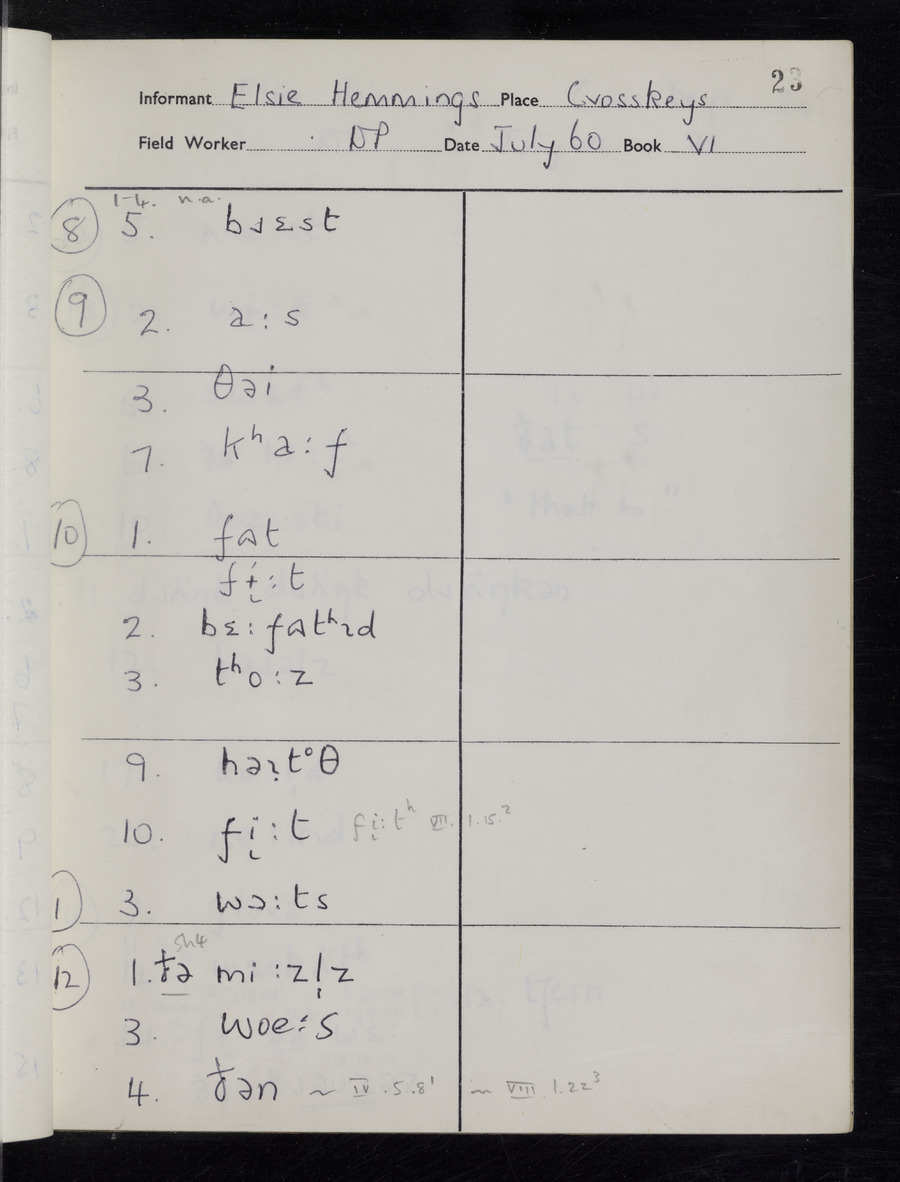 23
Informant Elsie Hemmings Place Crosskeys
Field Worker DP Date July 60 Book VI
1-4. n.a.
8 5. bɹɛst
9
2. a:s
3. θəi
7. kʰa:f
10 1. fat
fɨ̞:t
2. bɛ:fatʰɪd
3. tʰo:z
9. həɪ̞t°θ
10. fi̞:t fi̞:tʰ VII. 1.15.²
1 3. wɔ:ts
sh4
12 1. ðə mi:zl̩z
3. wœ:s
4. ðən ~ IV.5.8¹ ~ VIII.1.22³